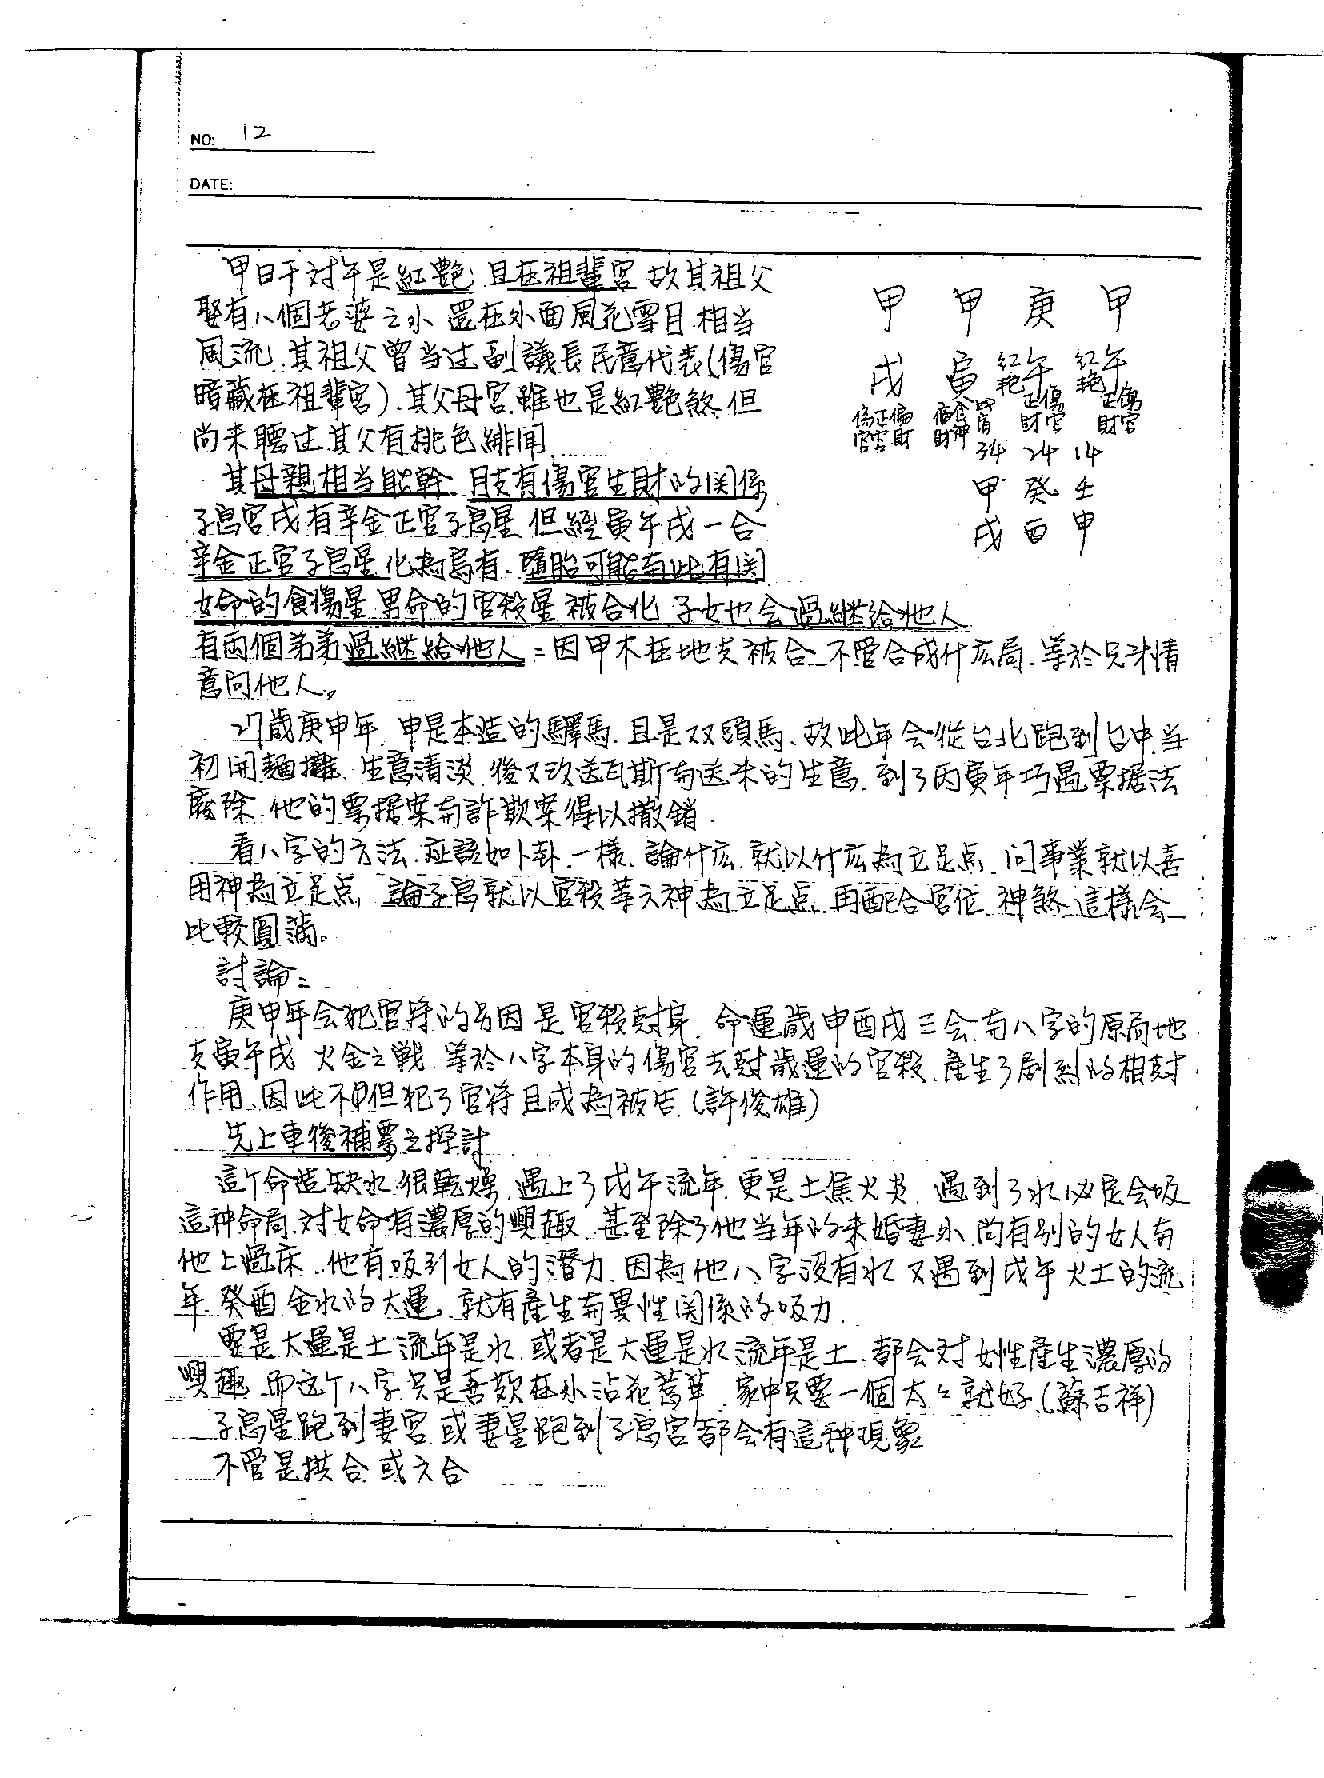 NO: 12
DATE:
甲日干対午是紅艷 且在祖輩宮 故其祖父
娶有八個老婆之外 還在外面風花雪月 相当
風流. 其祖父曾当过副議長民意代表(傷官
暗藏在祖輩宮). 其父母宮 雖也是紅艷煞 但
尚未聽过其父有桃色緋聞
其母親相当能幹 月支有傷官生財的関係
子息宮戌有辛金正官子息星 但經寅午戌一合
辛金正官子息星化為烏有. 墮胎可能与此有関
女命的食傷星 男命的官殺星 被合化 子女也会過継給他人
有兩個弟弟過継給他人: 因甲木在地支被合 不管合成什広局. 等於兄弟情
意向他人。
甲 甲 庚 甲
戌 寅 紅艳午 紅艳午
傷官 正官 偏財 偏財 食神 正財 傷官 正財 傷官
34 24 14
甲 癸 壬
戌 酉 申
27歲庚申年 申是本造的驛馬. 且是双頭馬. 故此年会從台北跑到台中. 当
初開麵攤. 生意清淡. 後又改送瓦斯与送米的生意. 到了丙寅年巧遇票据法
廢除. 他的票据案与詐欺案得以撤銷.
看八字的方法. 应該如卜卦一樣. 論什広 就以什広為立足点. 问事業就以喜
用神為立足点 論子息就以官殺華之神為立足点. 再配合宮位 神煞 這樣会
比較圓満。
討論:
庚申年会犯官符的原因是官殺尅身. 命運歲申酉戌三会与八字的原局地
支寅午戌 火金之戦 等於八字本身的傷官去尅歲運的官殺. 產生了劇烈的相尅
作用 因此不但犯了官符且成為被告 (許俊雄)
先上車後補票之探討
這个命造缺水 很乾燥. 遇上了戊午流年 更是土焦火炎 遇到了水必定会吸
這种命局 対女命有濃厚的興趣. 甚至除了他当年的未婚妻外 尚有別的女人与
他上過床. 他有吸引女人的潛力. 因為他八字没有水 又遇到戊午火土的流
年. 癸酉金水的大運. 就有產生与異性関係的吸力.
要是大運是土流年是水 或者是大運是水流年是土. 都会対女性產生濃厚的
興趣. 而这个八字只是喜歡在外沾花惹草. 家中只要一個太々就好 (蘇吉祥)
子息星跑到妻宮 或妻星跑到子息宮都会有這种現象
不管是拱合或六合